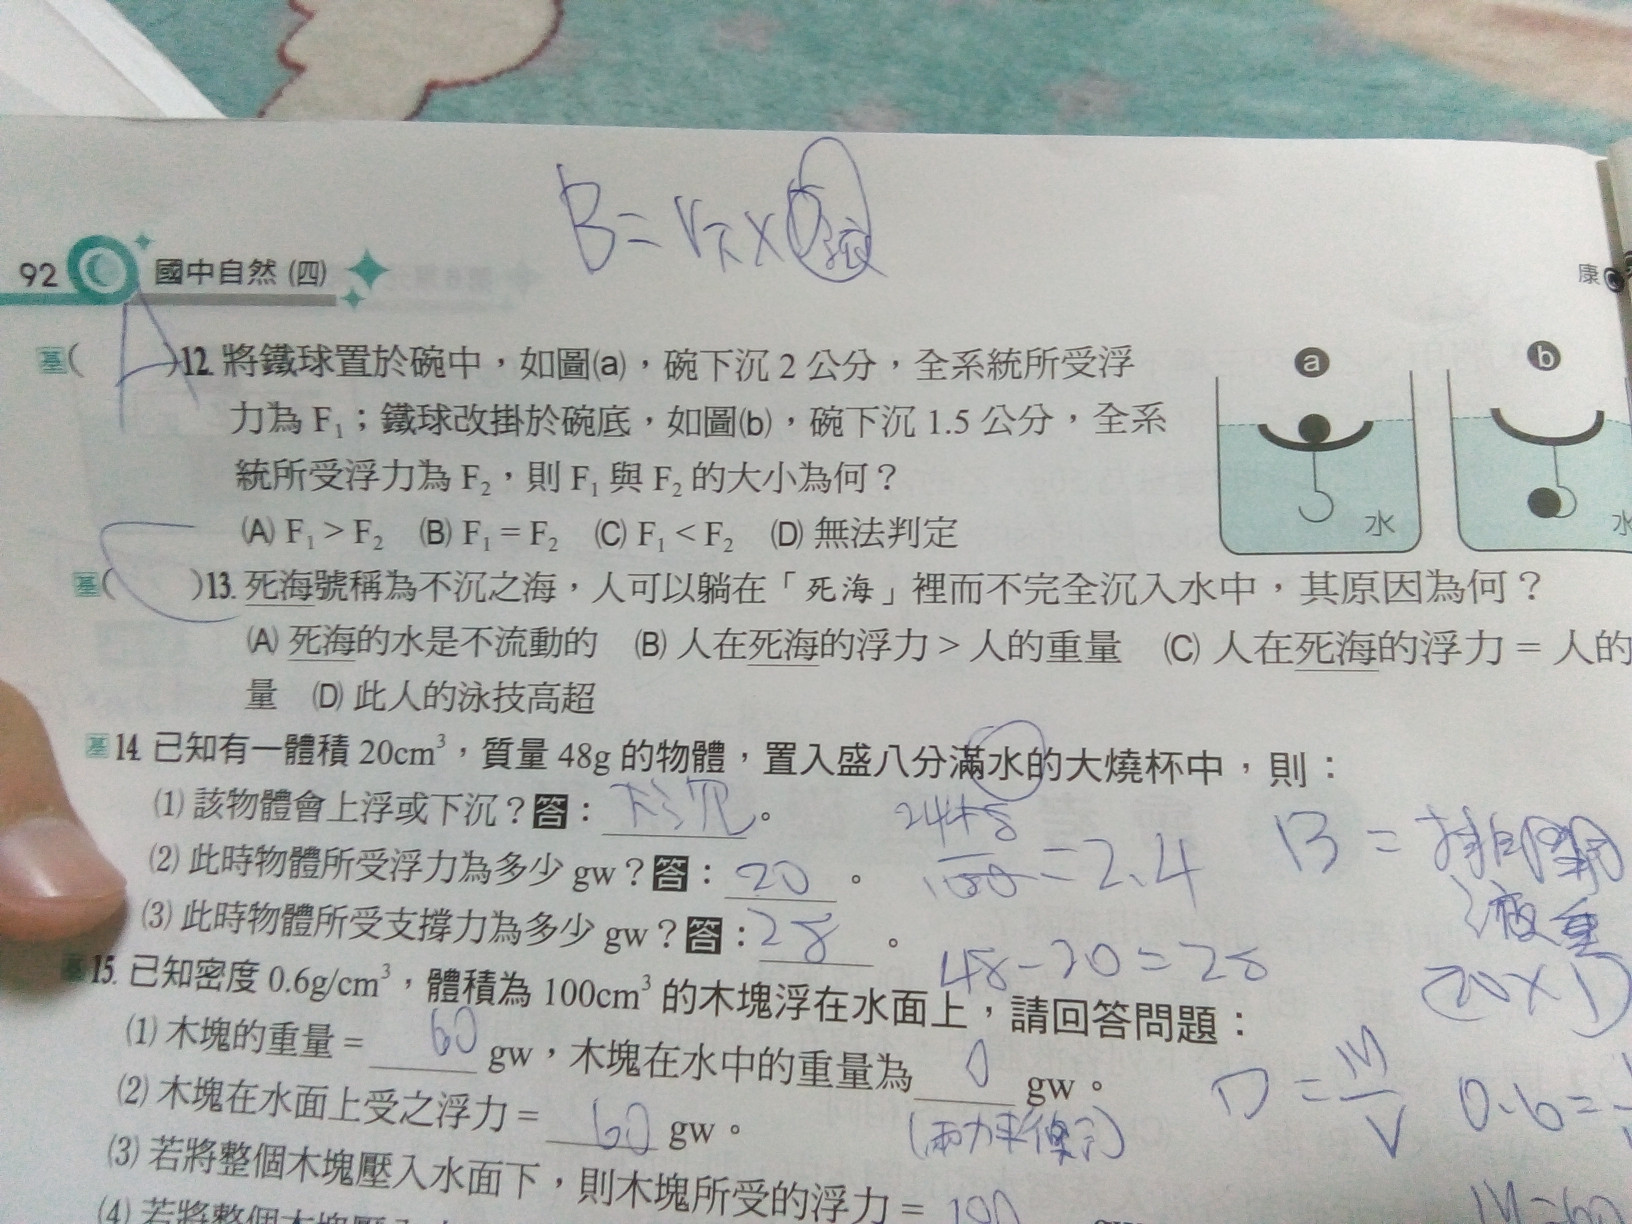 B = V下 × D液
92 國中自然 (四)
康
基( A )12. 將鐵球置於碗中，如圖(a)，碗下沉 2 公分，全系統所受浮
力為 F₁；鐵球改掛於碗底，如圖(b)，碗下沉 1.5 公分，全系
統所受浮力為 F₂，則 F₁ 與 F₂ 的大小為何？
(A) F₁ > F₂ (B) F₁ = F₂ (C) F₁ < F₂ (D) 無法判定
a
水
b
水
基( C )13. 死海號稱為不沉之海，人可以躺在「死海」裡而不完全沉入水中，其原因為何？
(A) 死海的水是不流動的 (B) 人在死海的浮力 > 人的重量 (C) 人在死海的浮力 = 人的
量 (D) 此人的泳技高超
基14. 已知有一體積 20cm³，質量 48g 的物體，置入盛八分滿水的大燒杯中，則：
(1) 該物體會上浮或下沉？答：下沉。
(2) 此時物體所受浮力為多少 gw？答：20。
= 2.4
B = 排開
液重
(20×1)
(3) 此時物體所受支撐力為多少 gw？答：28。
48-20=28
基15. 已知密度 0.6g/cm³，體積為 100cm³ 的木塊浮在水面上，請回答問題：
(1) 木塊的重量 = 60 gw，木塊在水中的重量為 0 gw。
D = M/V 0.6=
(2) 木塊在水面上受之浮力 = 60 gw。
(3) 若將整個木塊壓入水面下，則木塊所受的浮力 = 100 gw
M=60
(4) 若將整個木塊壓入水